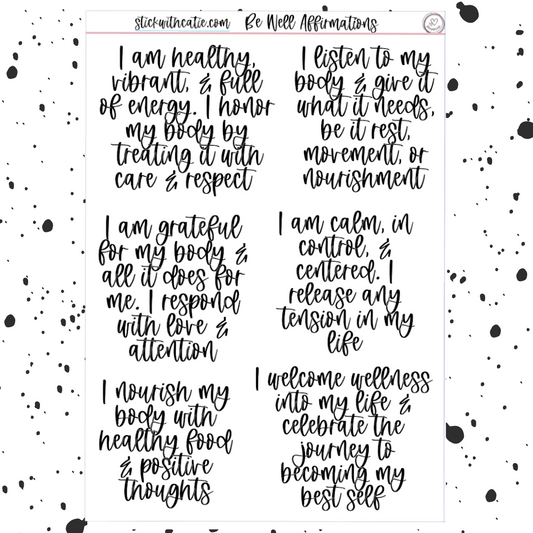 stickwithcatie.com Be Well Affirmations
I am healthy,
vibrant, & full
of energy. I honor
my body by
treating it with
care & respect
I listen to my
body & give it
what it needs,
be it rest,
movement, or
nourishment
I am grateful
for my body &
all it does for
me. I respond
with love &
attention
I am calm, in
control, &
centered. I
release any
tension in my
life
I nourish my
body with
healthy food
& positive
thoughts
I welcome wellness
into my life &
celebrate the
journey to
becoming my
best self